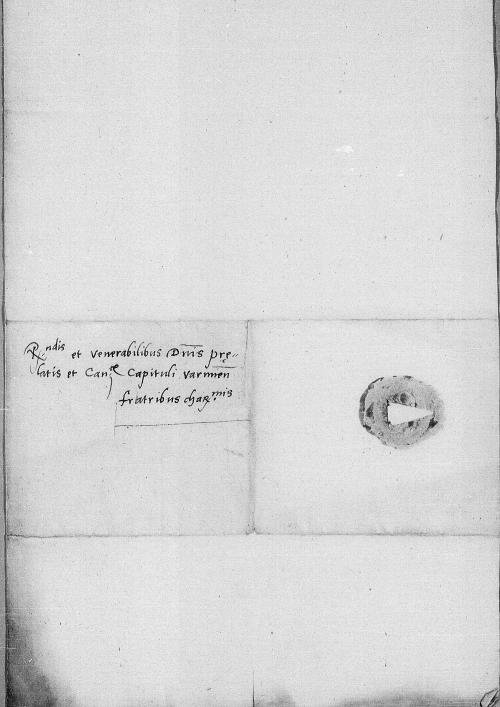 R.ndis et venerabilibus Dn̄is prę-
latis et Can. Capituli varmiēn
fratribus char.mis